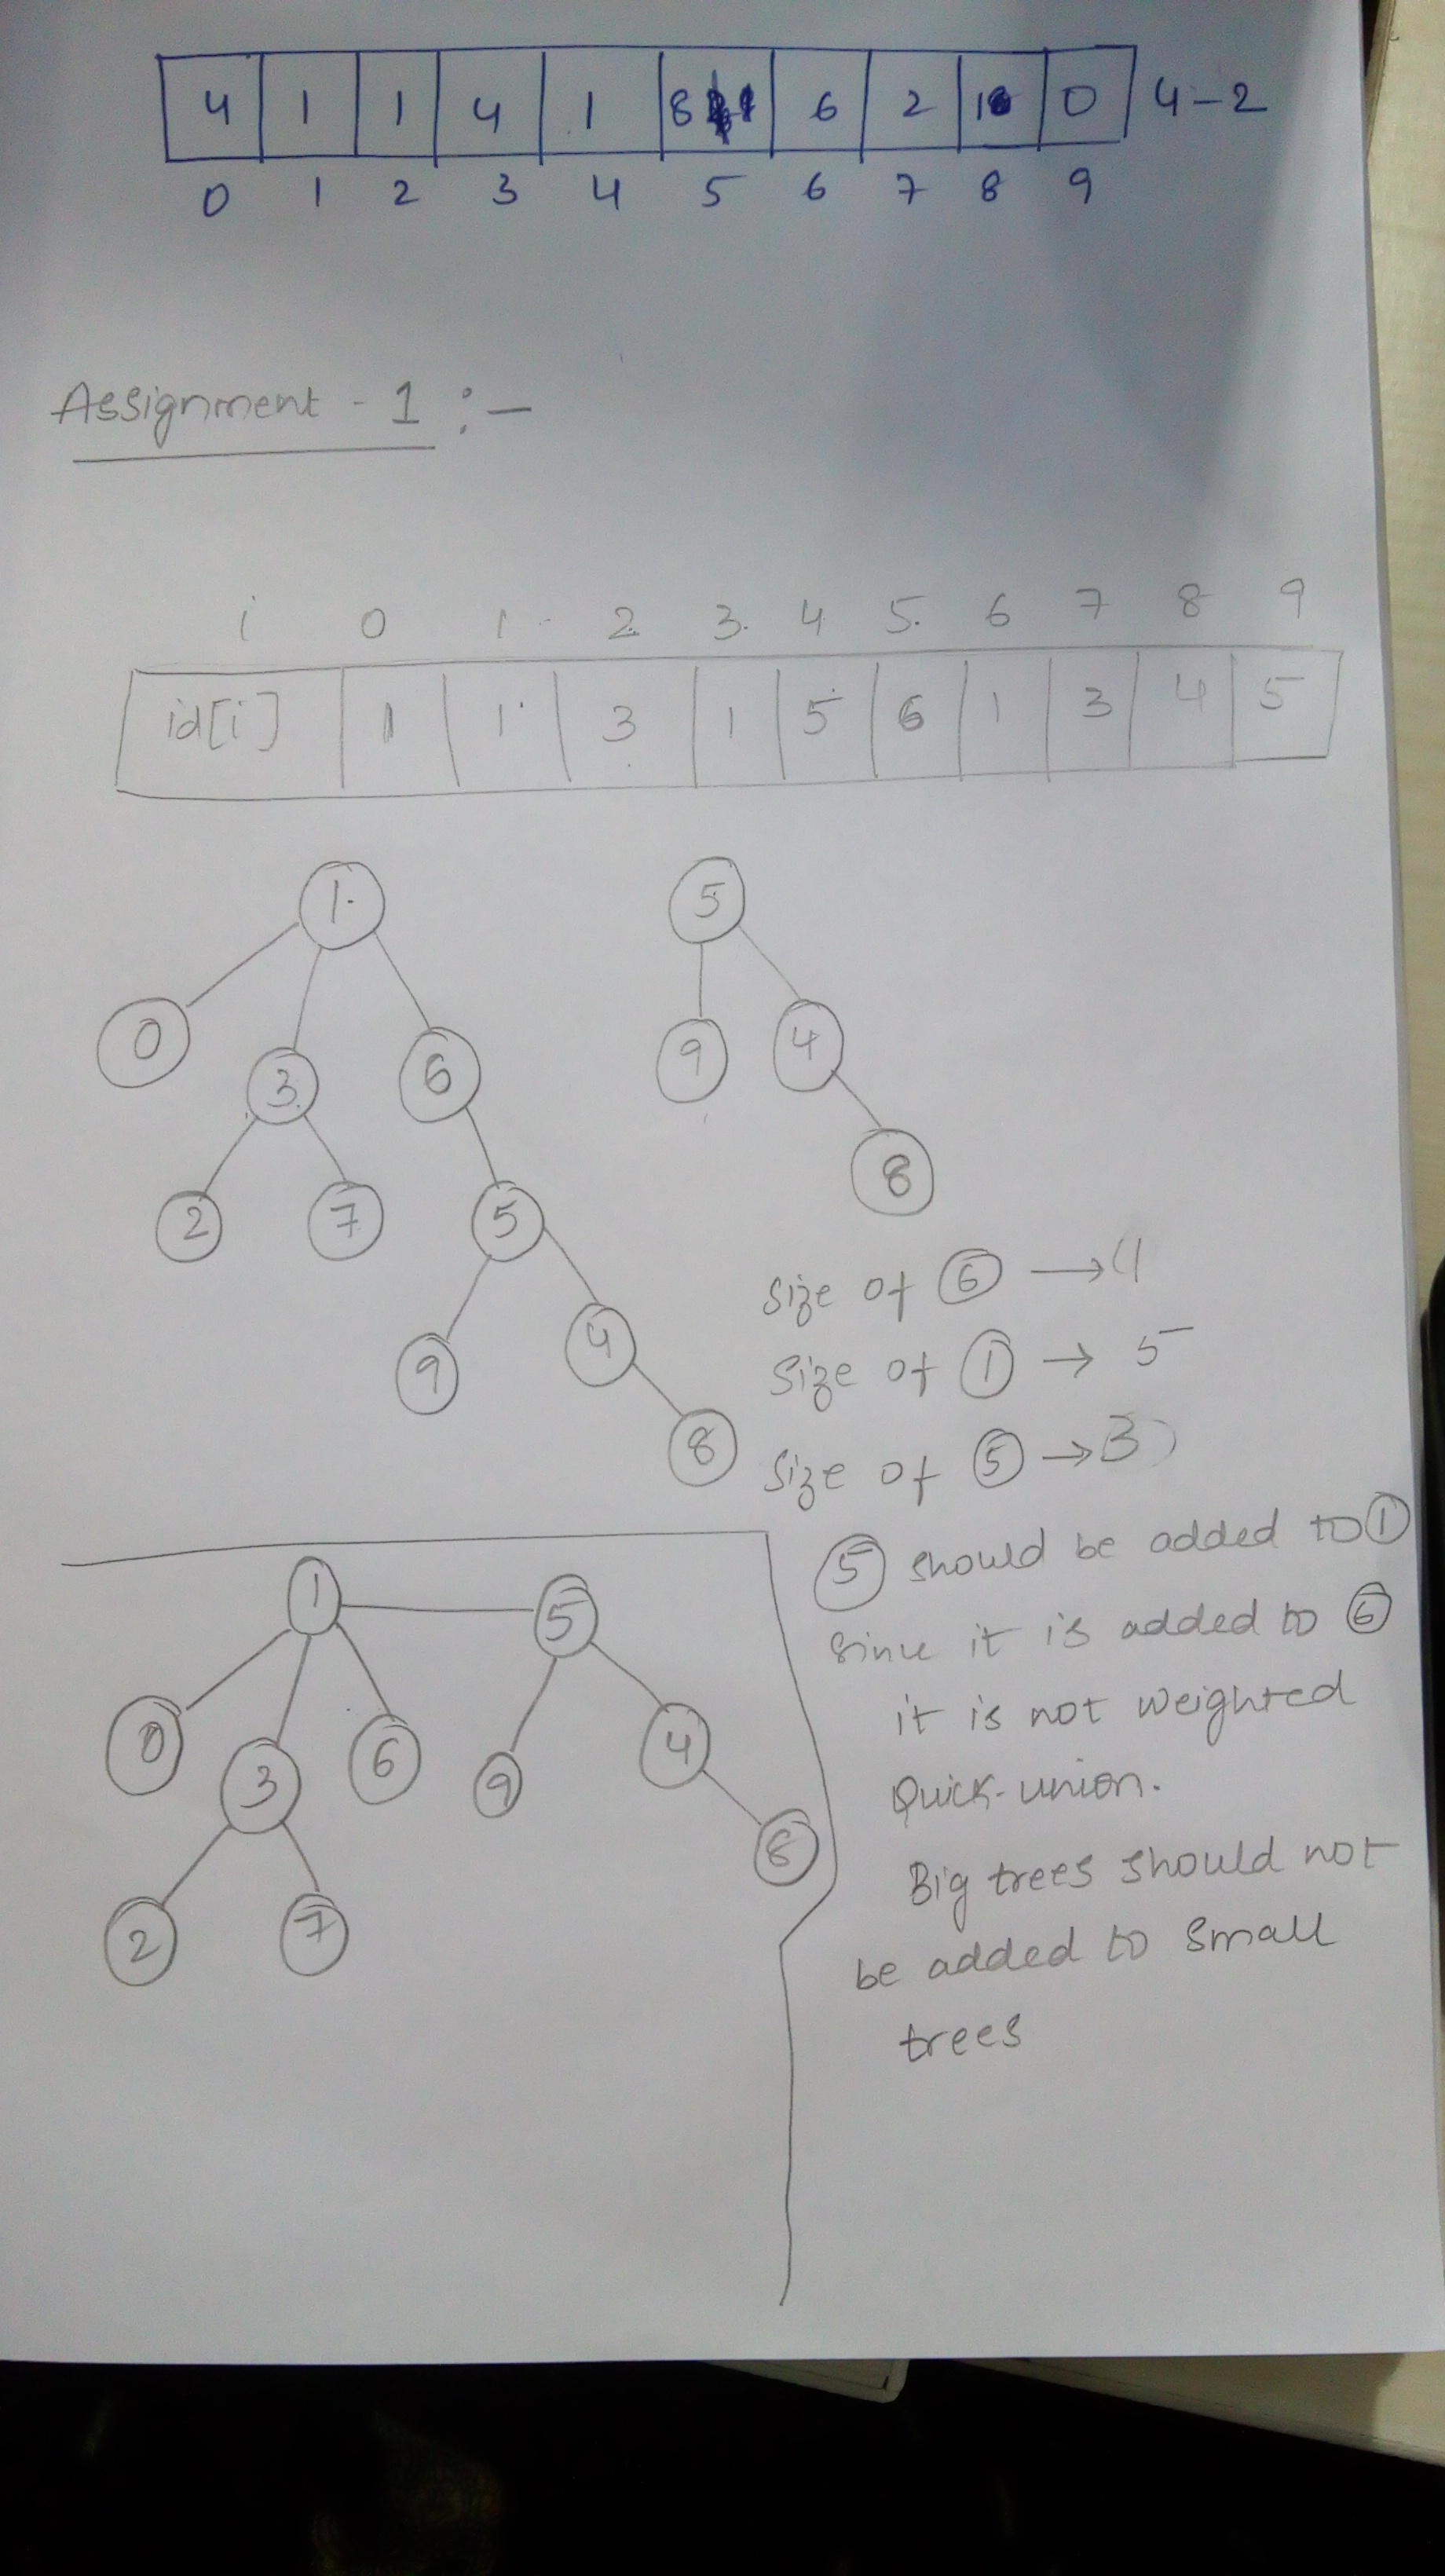 4 1 1 4 1 8 6 2 1 0 4-2
0 1 2 3 4 5 6 7 8 9
Assignment - 1 :-
i 0 1 2 3 4 5 6 7 8 9
id[i] 1 1 3 1 5 6 1 3 4 5
1 5
0 3 6 9 4
2 7 5 8
9 4
8
Size of 6 →
Size of 1 → 5
Size of 5 → 3
1 5
0 3 6 9 4
2 7 8
5 should be added to 1
Since it is added to 6
it is not weighted
Quick-union.
Big trees should not
be added to small
trees